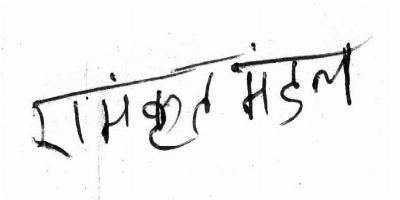 रामंकृत मंडल